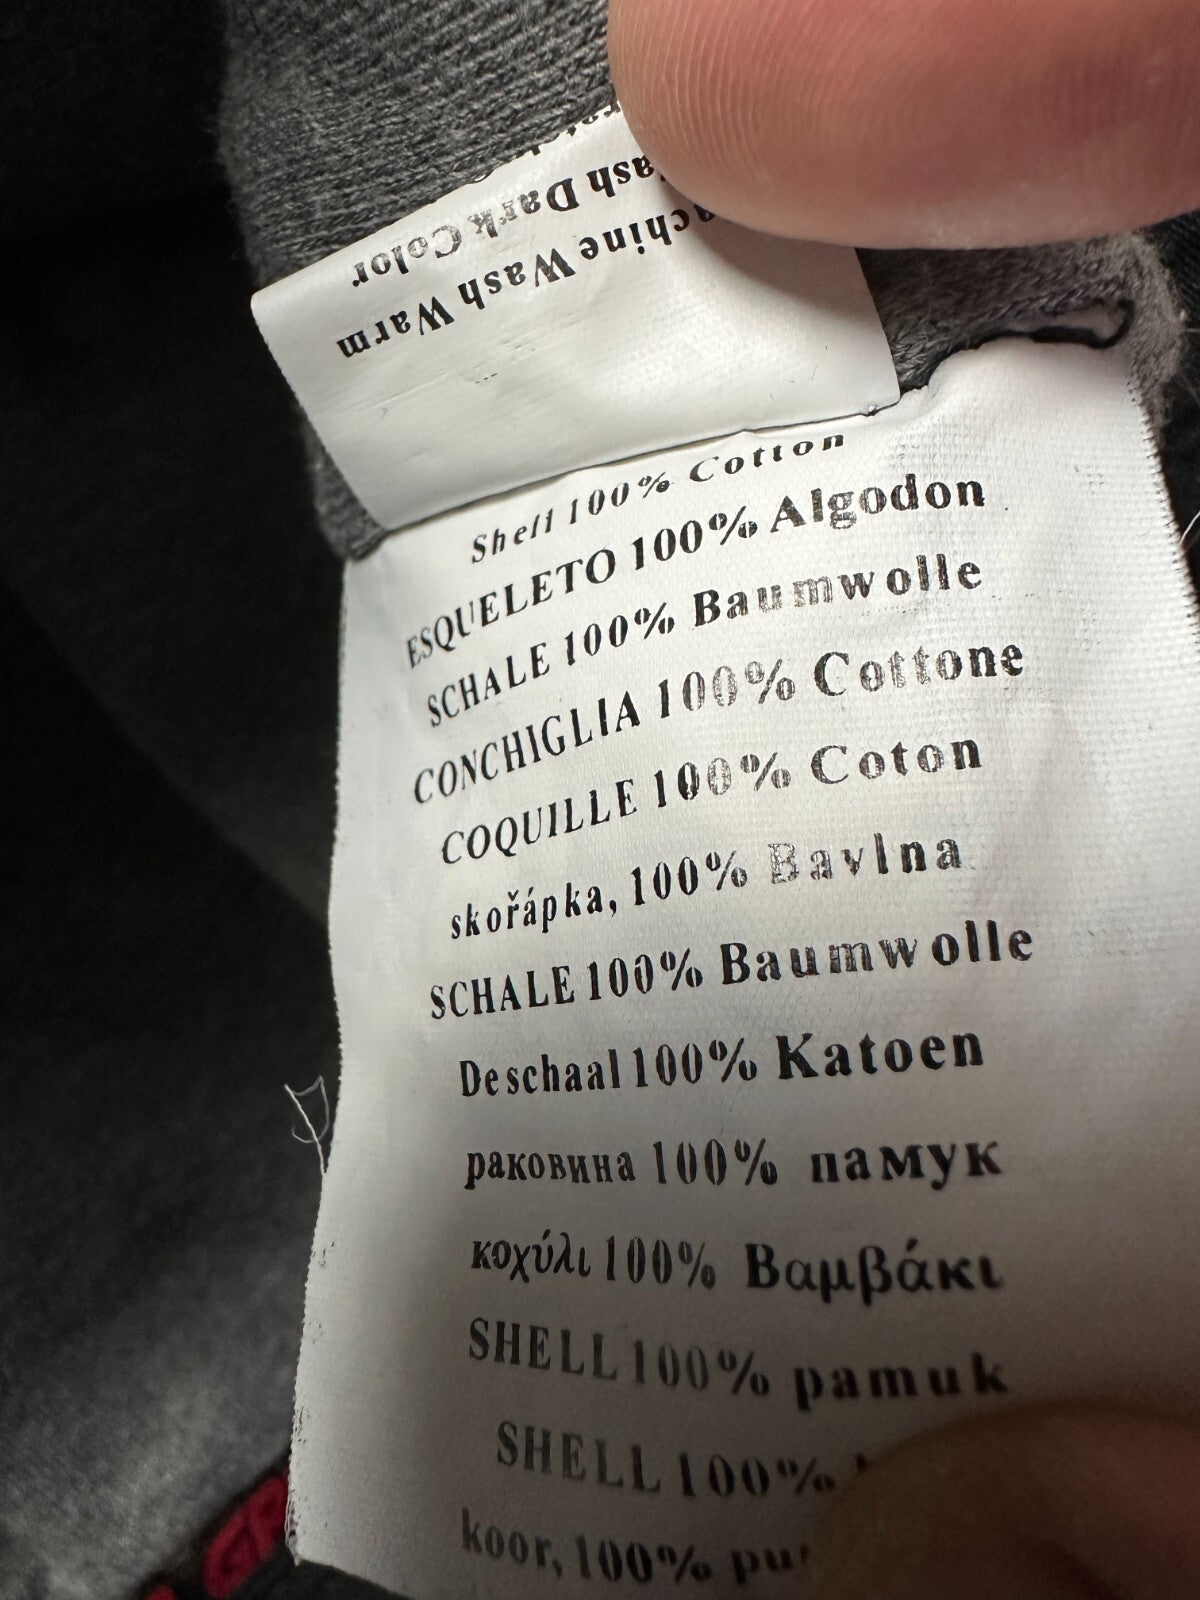 Wash Dark Color
Machine Wash Warm
Shell 100% Cotton
ESQUELETO 100% Algodon
SCHALE 100% Baumwolle
CONCHIGLIA 100% Cottone
COQUILLE 100% Coton
skořápka, 100% Bavlna
SCHALE 100% Baumwolle
Deschaal 100% Katoen
раковина 100% памук
κοχύλι 100% Βαμβάκι
SHELL 100% pamuk
SHELL 100%
koor, 100%